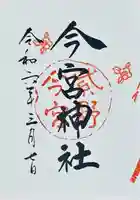 今宮神社
令和六年三月七日